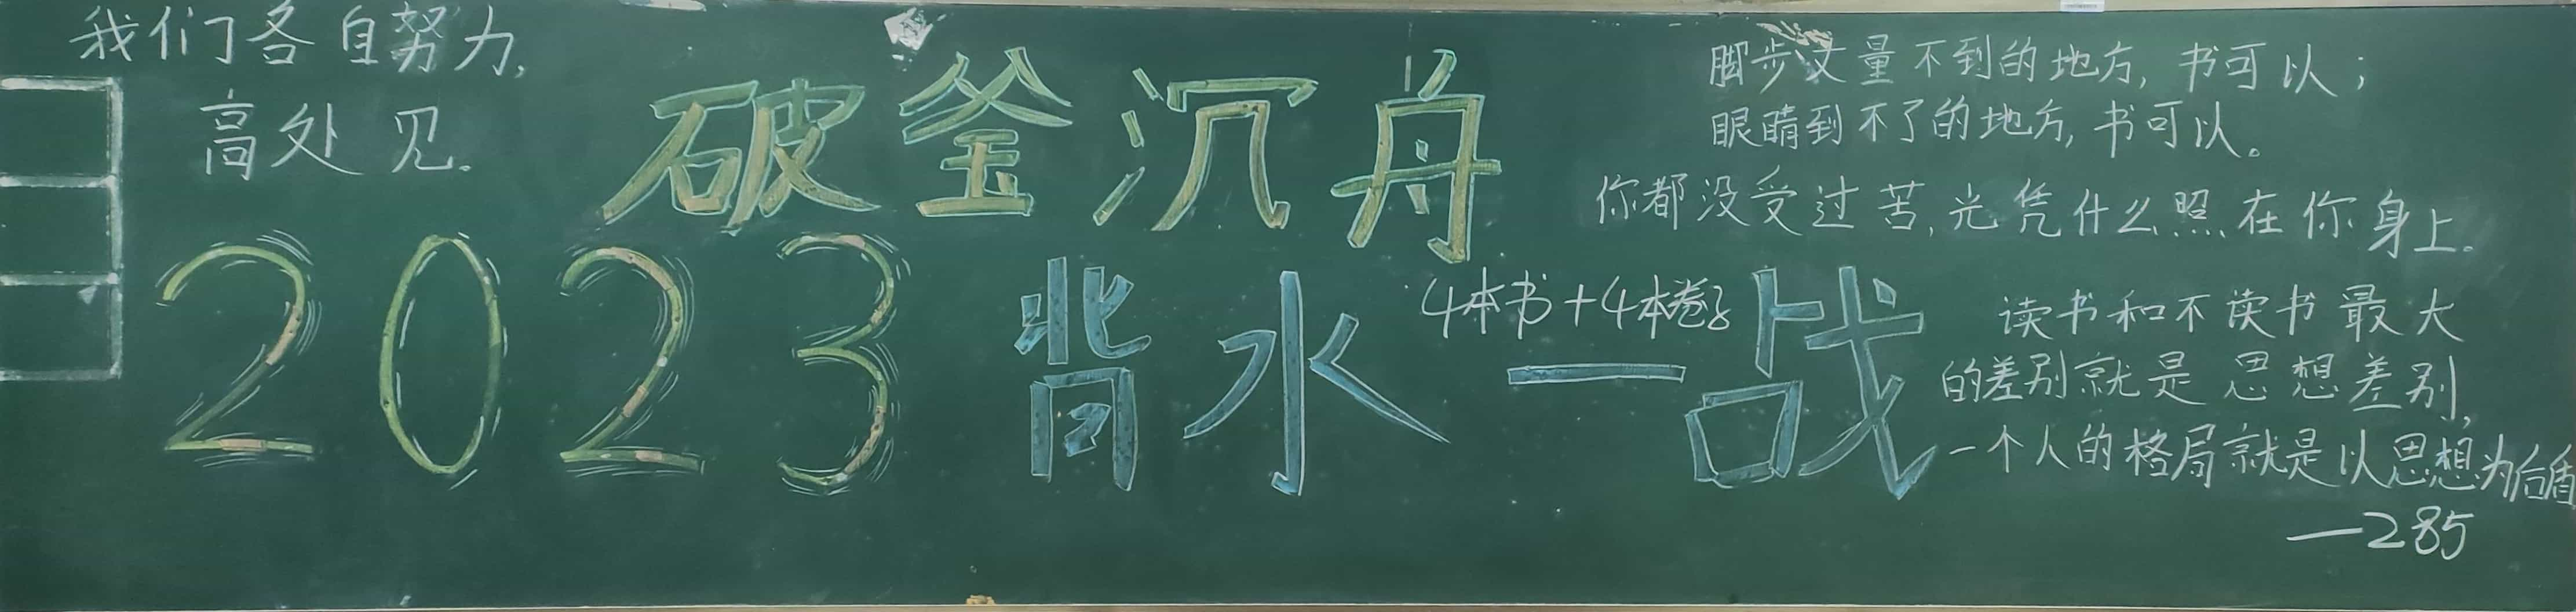 我们各自努力,
高处见。
破釜沉舟
2023 背水一战
4本书+4本卷子
脚步丈量不到的地方,书可以;
眼睛到不了的地方,书可以。
你都没受过苦,光凭什么照在你身上。
读书和不读书最大
的差别就是思想差别,
一个人的格局就是以思想为后盾
—285